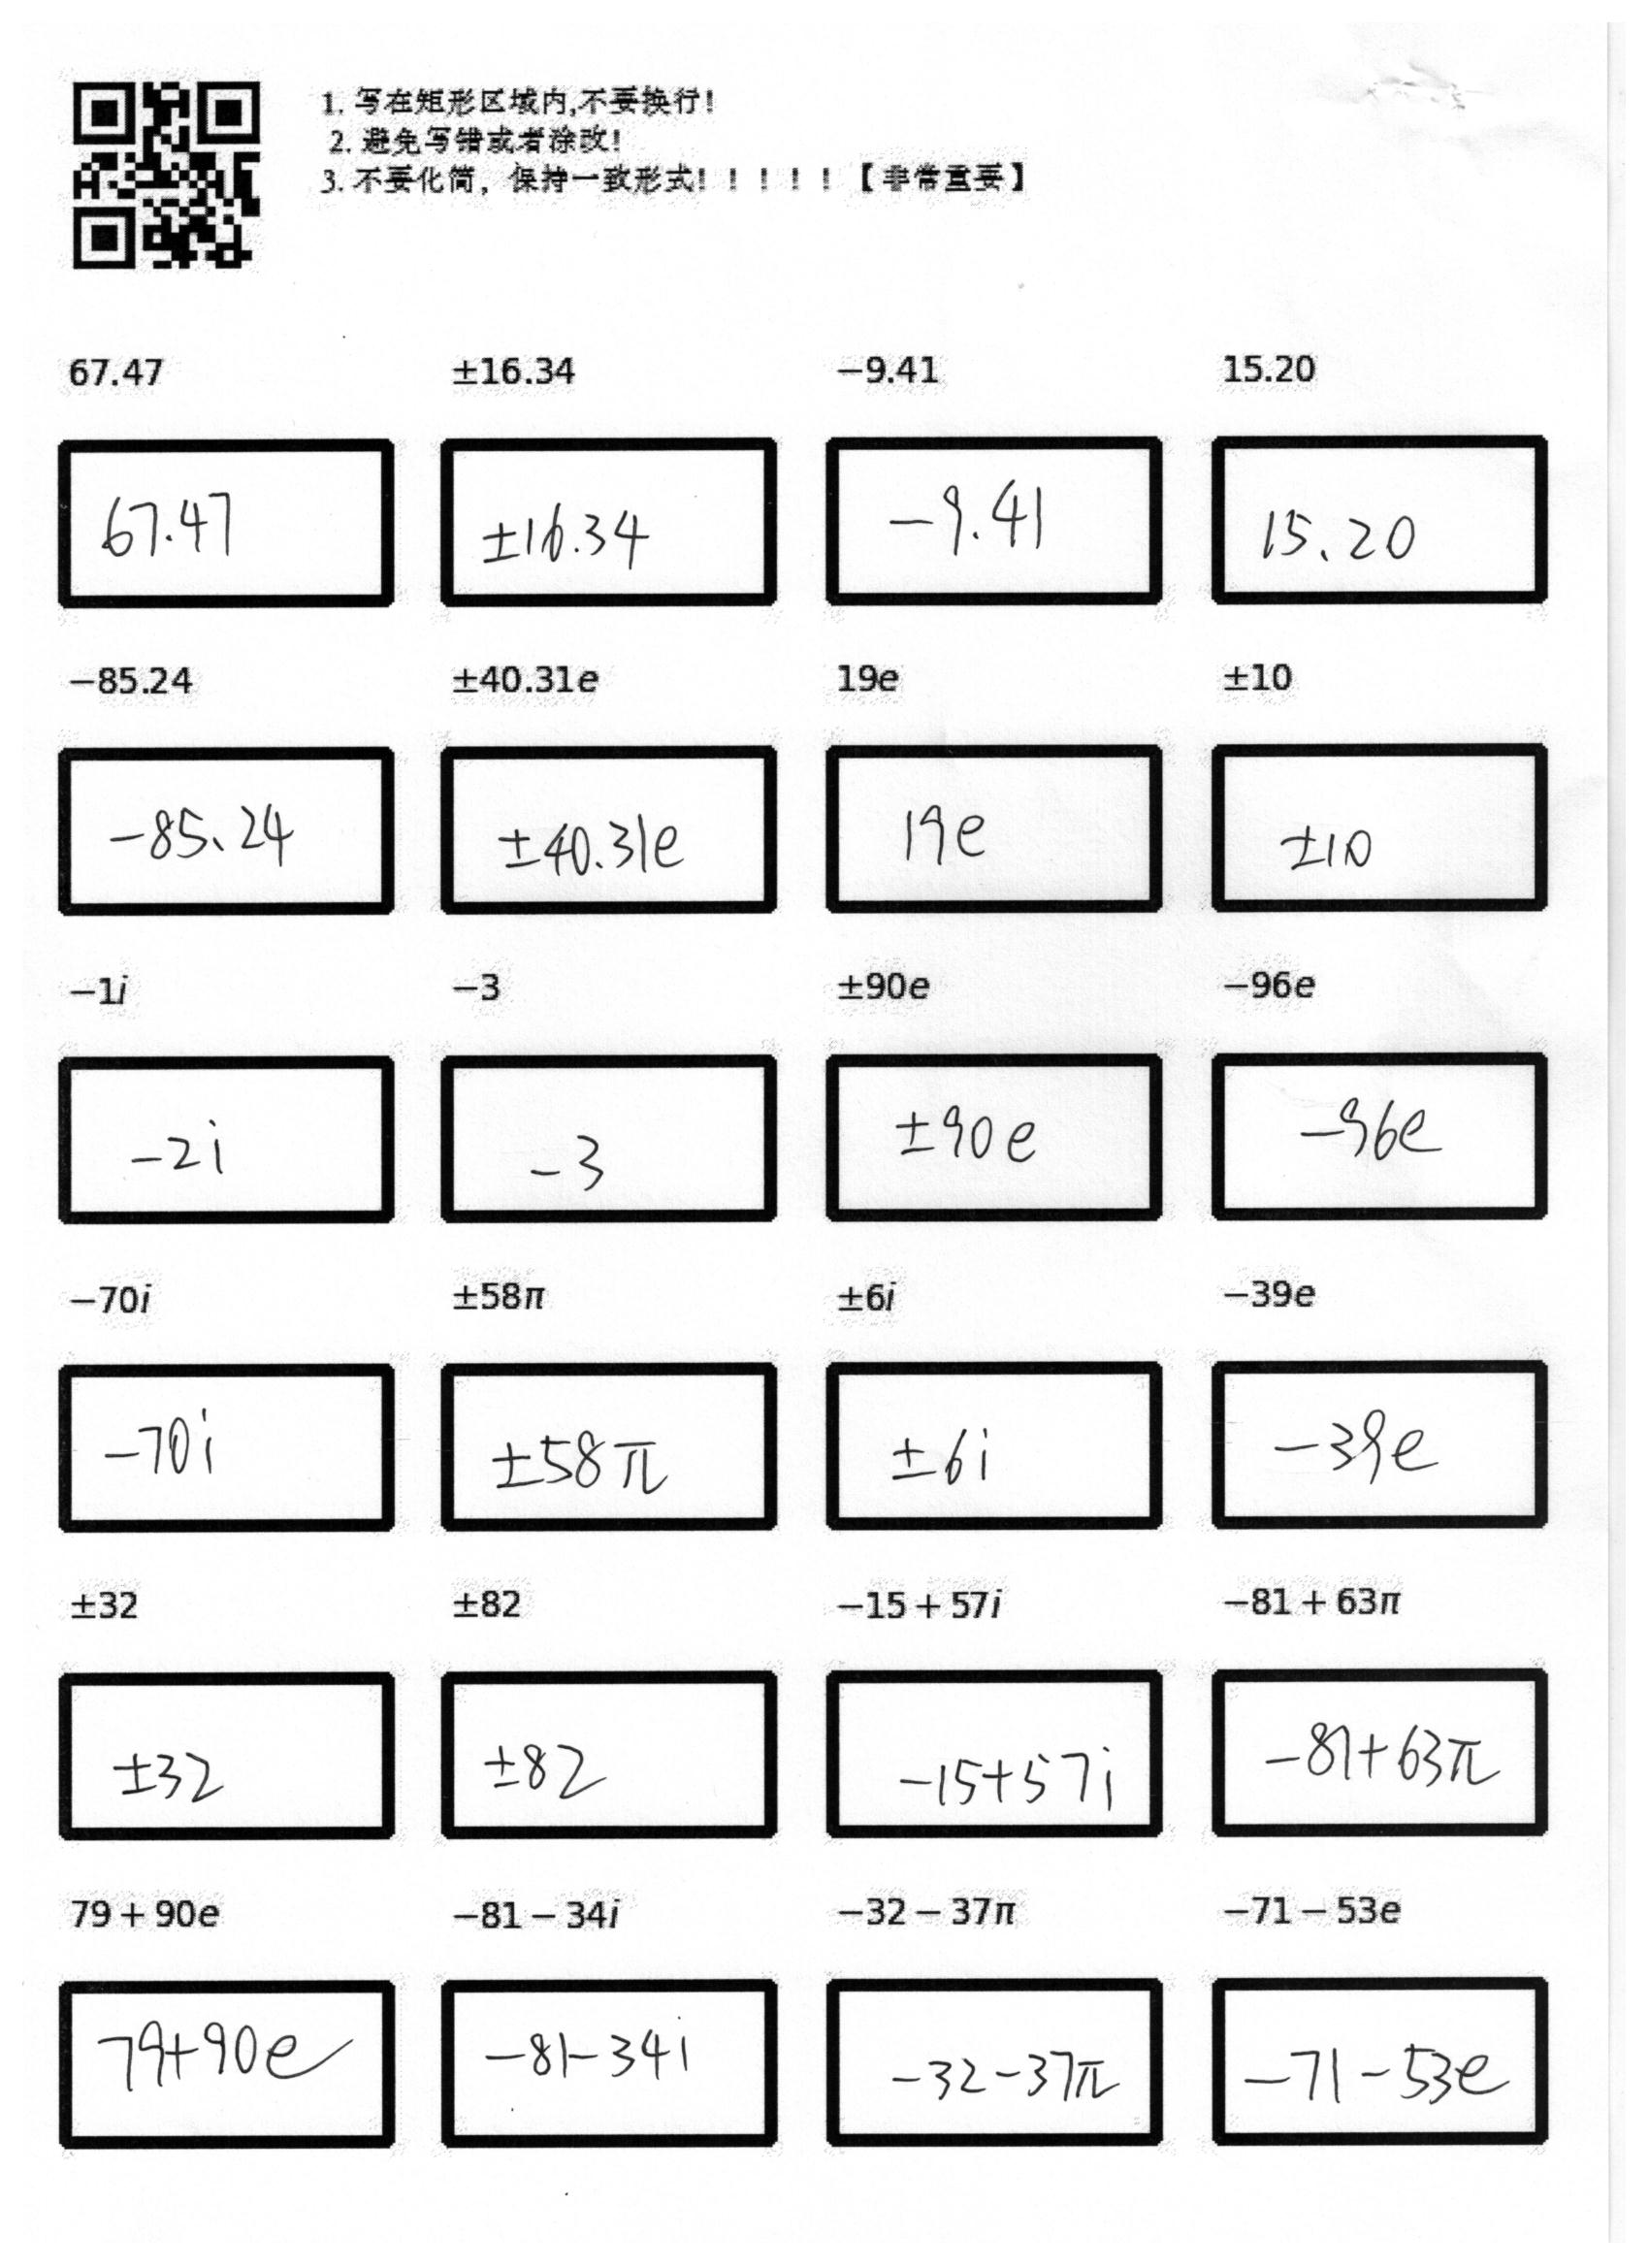 1. 写在矩形区域内,不要换行!
2. 避免写错或者涂改!
3. 不要化简，保持一致形式! ! ! ! ! 【非常重要】
67.47 ±16.34 −9.41 15.20
67.47 ±16.34 −9.41 15.20
−85.24 ±40.31e 19e ±10
−85.24 ±40.31e 19e ±10
−1i −3 ±90e −96e
−2i −3 ±90e −96e
−70i ±58π ±6i −39e
−70i ±58π ±6i −39e
±32 ±82 −15 + 57i −81 + 63π
±32 ±82 −15+57i −81+63π
79 + 90e −81 − 34i −32 − 37π −71 − 53e
79+90e −81−34i −32−37π −71−53e